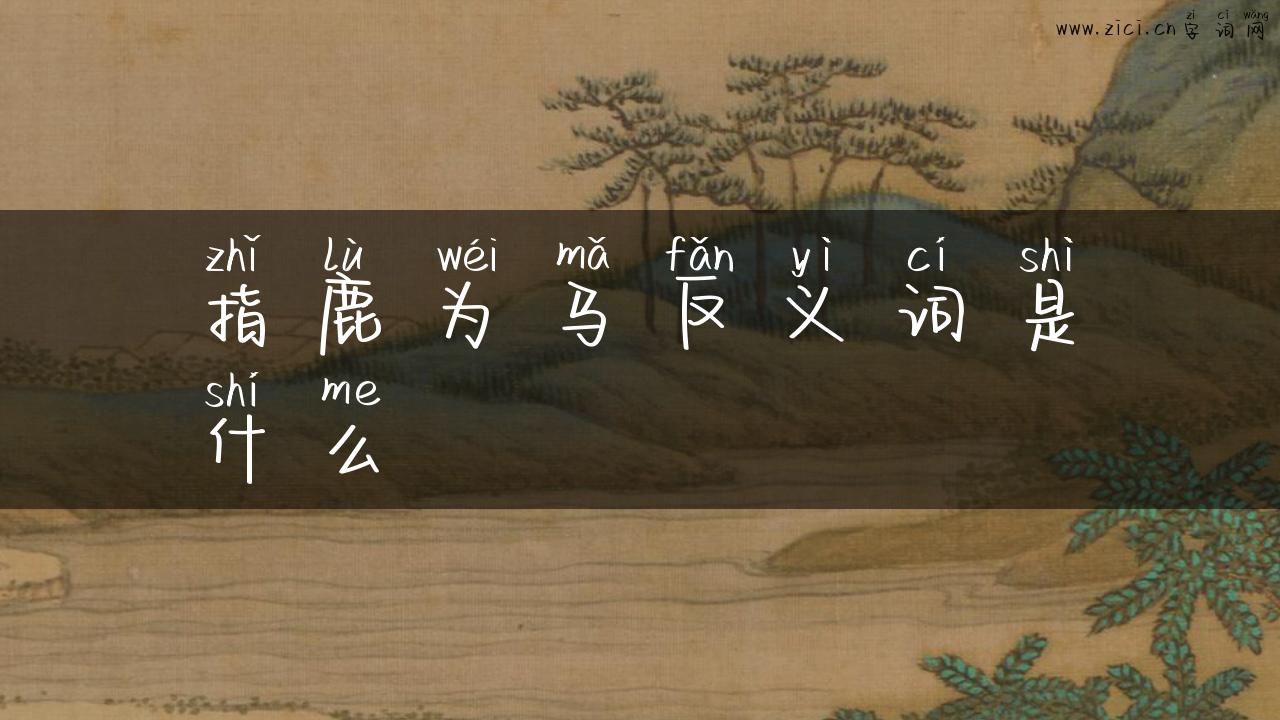 zì cí wǎng
www.zici.cn 字词网
zhǐ lù wéi mǎ fǎn yì cí shì
指鹿为马反义词是
shí me
什么